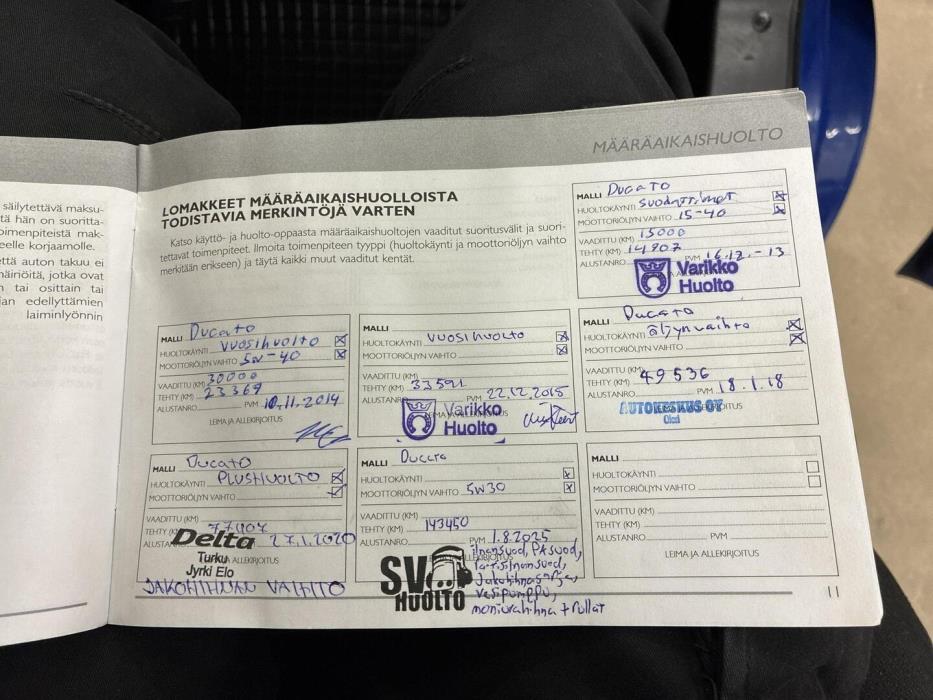 MÄÄRÄAIKAISHUOLTO
säilytettävä maksu-
tä hän on suoritta-
oimenpiteistä mak-
eelle korjaamolle.
että auton takuu ei
häiriöitä, jotka ovat
n tai osittain tai
an edellyttämien
laiminlyönnin
LOMAKKEET MÄÄRÄAIKAISHUOLLOISTA
TODISTAVIA MERKINTÖJÄ VARTEN
Katso käyttö- ja huolto-oppaasta määräaikaishuoltojen vaaditut suoritusvälit ja suori-
tettavat toimenpiteet. Ilmoita toimenpiteen tyyppi (huoltokäynti ja moottoriöljyn vaihto
merkitään erikseen) ja täytä kaikki muut vaaditut kentät.
MALLI Ducato
HUOLTOKÄYNTI Suodattimet
MOOTTORIÖLJYN VAIHTO 15-40
VAADITTU (KM) 15000
TEHTY (KM) 14907
ALUSTANRO. PVM 16.12.-13
Varikko
Huolto
MALLI Ducato
HUOLTOKÄYNTI Vuosihuolto
MOOTTORIÖLJYN VAIHTO 5W-40
VAADITTU (KM) 30000
TEHTY (KM) 23369
ALUSTANRO. PVM 10.11.2014
LEIMA JA ALLEKIRJOITUS
MALLI
HUOLTOKÄYNTI Vuosihuolto
MOOTTORIÖLJYN VAIHTO
VAADITTU (KM)
TEHTY (KM) 33591
ALUSTANRO. PVM 22.12.2015
Varikko
Huolto
MALLI Ducato
HUOLTOKÄYNTI öljynvaihto
MOOTTORIÖLJYN VAIHTO
VAADITTU (KM)
TEHTY (KM) 49536
ALUSTANRO. PVM 18.1.18
AUTOKESKUS OY
MALLI Ducato
HUOLTOKÄYNTI PLUSHUOLTO
MOOTTORIÖLJYN VAIHTO
VAADITTU (KM)
TEHTY (KM)
ALUSTANRO 27.1.2020
Delta
Turku
Jyrki Elo
JAKOHIHNAN VAIHTO
MALLI Ducato
HUOLTOKÄYNTI
MOOTTORIÖLJYN VAIHTO 5W30
VAADITTU (KM)
TEHTY (KM) 143450
ALUSTANRO. PVM 1.8.2025
SV
HUOLTO
ilmansuod, PAsuod,
Jakohihnasarja,
vesipumppu,
moniurahihna + rullat
MALLI
HUOLTOKÄYNTI
MOOTTORIÖLJYN VAIHTO
VAADITTU (KM)
TEHTY (KM)
ALUSTANRO. PVM
LEIMA JA ALLEKIRJOITUS
11